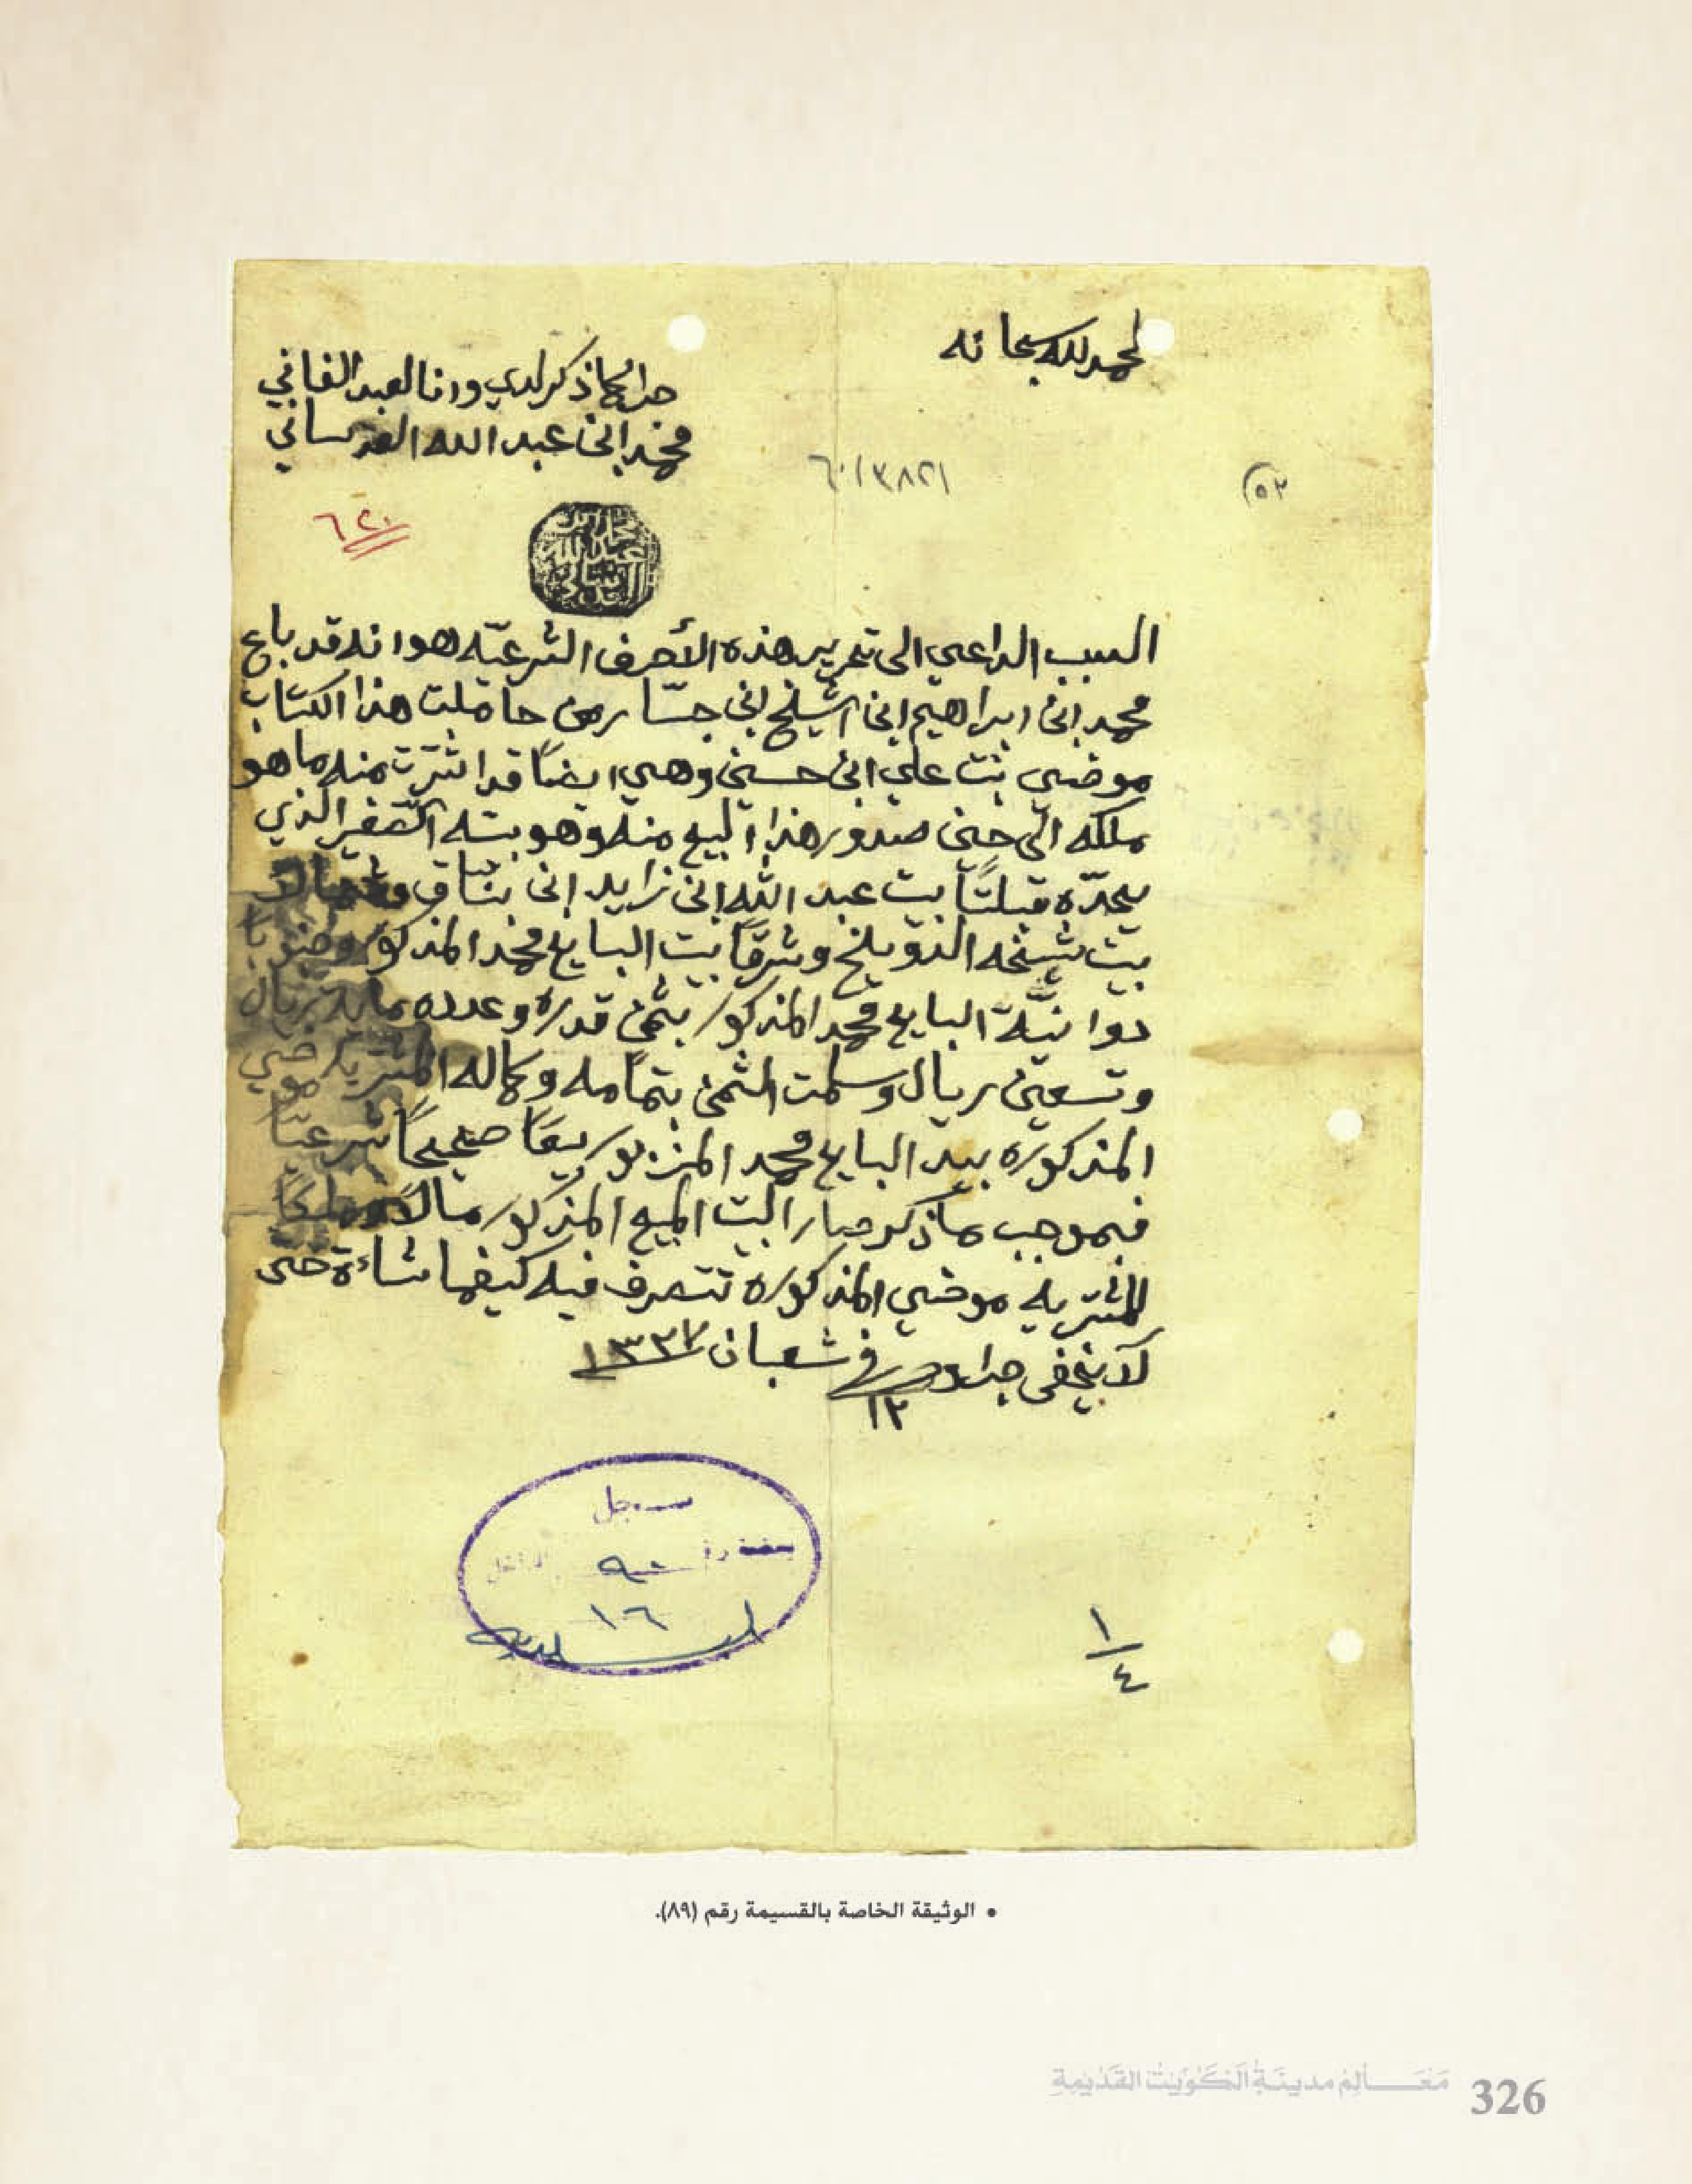 الحمد لله سبحانه
جرا كما ذكر لدي وانا العبد الفاني
محمد ابن عبد الله العدساني
(٥٣
٦٠١٣٨٢١
٦٢٠
السبب الداعي الى تحرير هذه الأحرف الشرعيّه هو انه قد باع
محمد ابن ابراهيم ابن الشيخ ابن جسّار من حاملت هذا الكتاب
موضي بنت علي ابن حسن وهي ايضاً قد اشترت منه ما هو
ملكه الى حين صدور هذا البيع منه وهو بيته الصغير الذي
يحدّه قبلتاً بيت عبد الله ابن زايد ابن بناق وشمالاً
بيت شيخه الذويخ وشرقاً بيت البايع محمد المذكور وجنوباً
ديوانيّة البايع محمد المذكور بثمن قدره وعدده ماية ريال
وتسعين ريال وسلمت الثمن بتمامه وكماله المشتريه موضي
المذكوره بيد البايع محمد المزبور بيعاً صحيحاً شرعيّاً
فبموجب ما ذكر صار البيت المبيع المذكور مالاً وملكاً
للمشتريه موضي المذكوره تتصرف فيه كيفما شاءة حتى
لا يخفى جرا وحرر في شعبان ١٣٣٧
١٢
سجل
بصفة رقم ٩٠ الداخل
١٦
١
٤
• الوثيقة الخاصة بالقسيمة رقم (٨٩).
مَعَالِم مدينَة الكُوَيت القَديمة 326